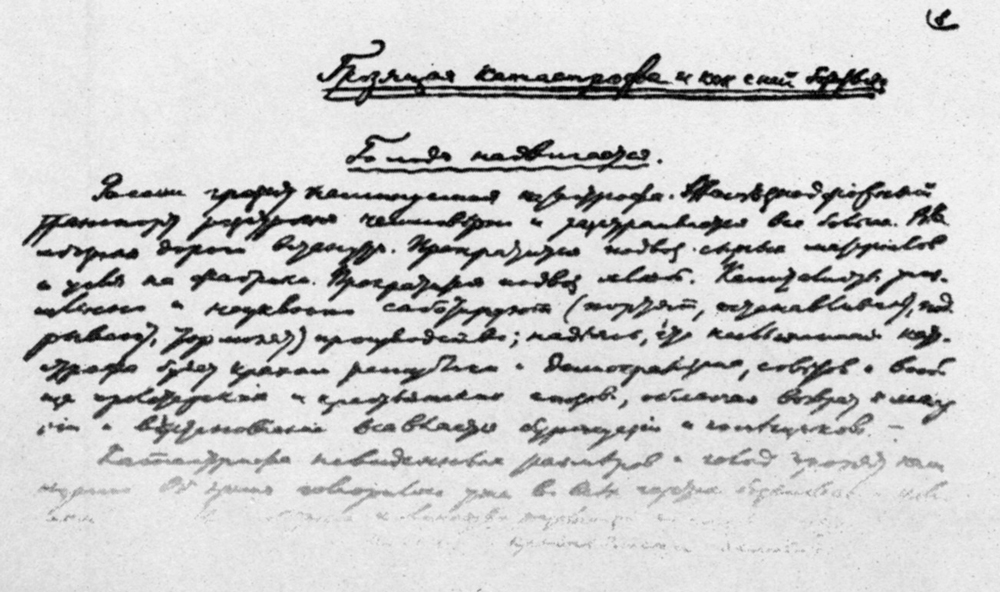 Грозящая катастрофа и как с ней бороться
Голод надвигается.
России грозит неминуемая катастрофа. Железнодорожный
транспорт расстроен неимоверно и расстраивается все больше. Же-
лезные дороги встанут. Прекратится подвоз сырых материалов
и угля на фабрики. Прекратится подвоз хлеба. Капиталисты умы-
шленно и неуклонно саботируют (портят, останавливают, под-
рывают, тормозят) производство, надеясь, что неслыханная ката-
строфа будет крахом республики и демократизма, советов и вооб-
ще пролетарских и крестьянских союзов, облегчая возврат к монар-
хии и восстановление всевластия буржуазии и помещиков. –
Катастрофа невиданных размеров и голод грозят неми-
нуемо. Об этом говорилось уже во всех газетах